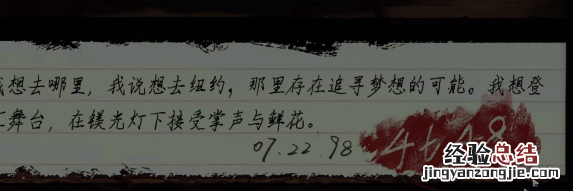 我想去哪里，我说想去纽约，那里存在追寻梦想的可能。我想登
舞台，在镁光灯下接受掌声与鲜花。
07.22.98
经验总结
jingyanzongjie.com